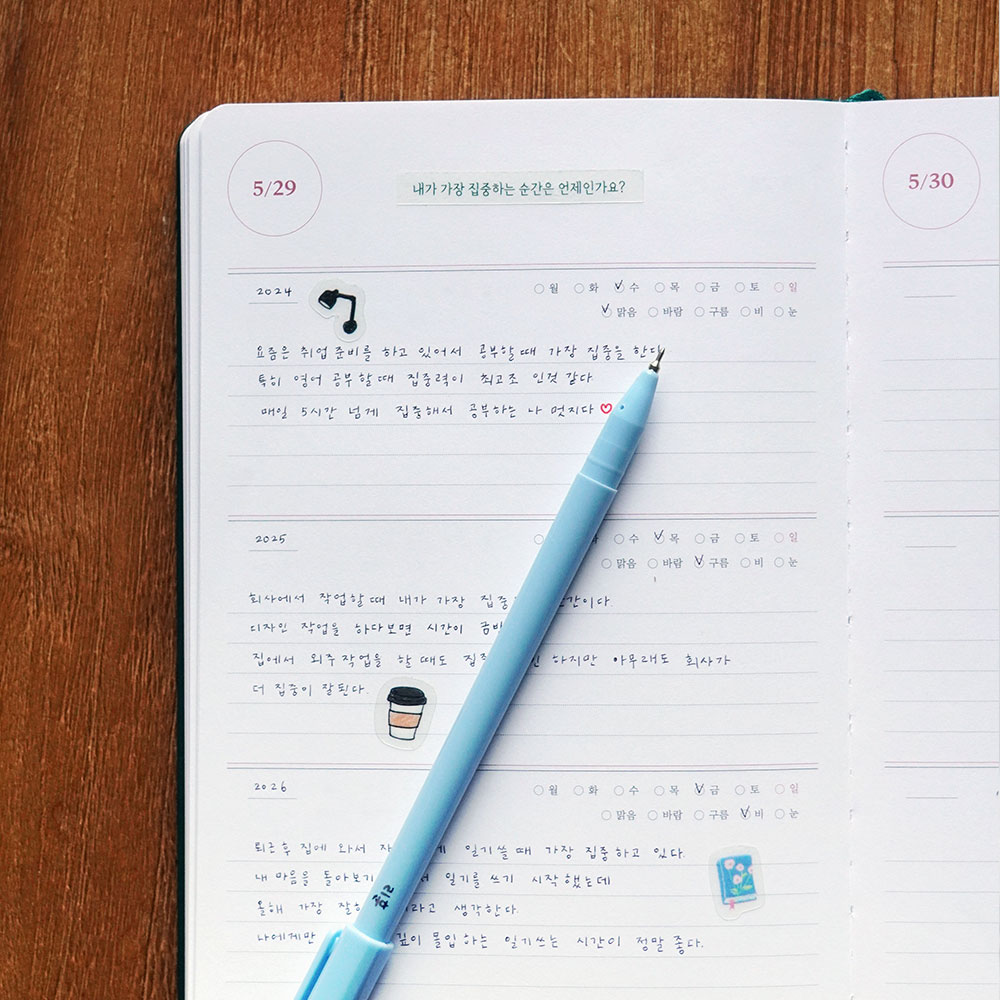 5/29
내가 가장 집중하는 순간은 언제인가요?
2024
월 화 수 목 금 토 일
맑음 바람 구름 비 눈
요즘은 취업준비를 하고 있어서 공부할때 가장 집중을 한다
특히 영어 공부할때 집중력이 최고조 인것 같다
매일 5시간 넘게 집중해서 공부하는 나 멋지다
2025
수 목 금 토 일
맑음 바람 구름 비 눈
회사에서 작업할때 내가 가장
디자인 작업을 하다보면 시간이
집에서 외주작업을 할때도 하지만 아무래도 회사가
더 집중이 잘된다.
2026
월 화 수 목 금 토 일
맑음 바람 구름 비 눈
퇴근후 집에 와서 일기쓸때 가장 집중하고 있다.
내 마음을 돌아보기 일기를 쓰기 시작했는데
올해 가장 생각한다.
나에게만 깊이 몰입하는 일기쓰는 시간이 정말 좋다.
5/30